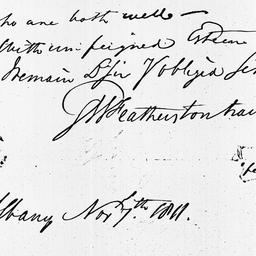 who are both well —
With unfeigned Esteem
I remain D Sir Y obliged Ser
G W Featherstonhau
Albany Nov 7th 1811.